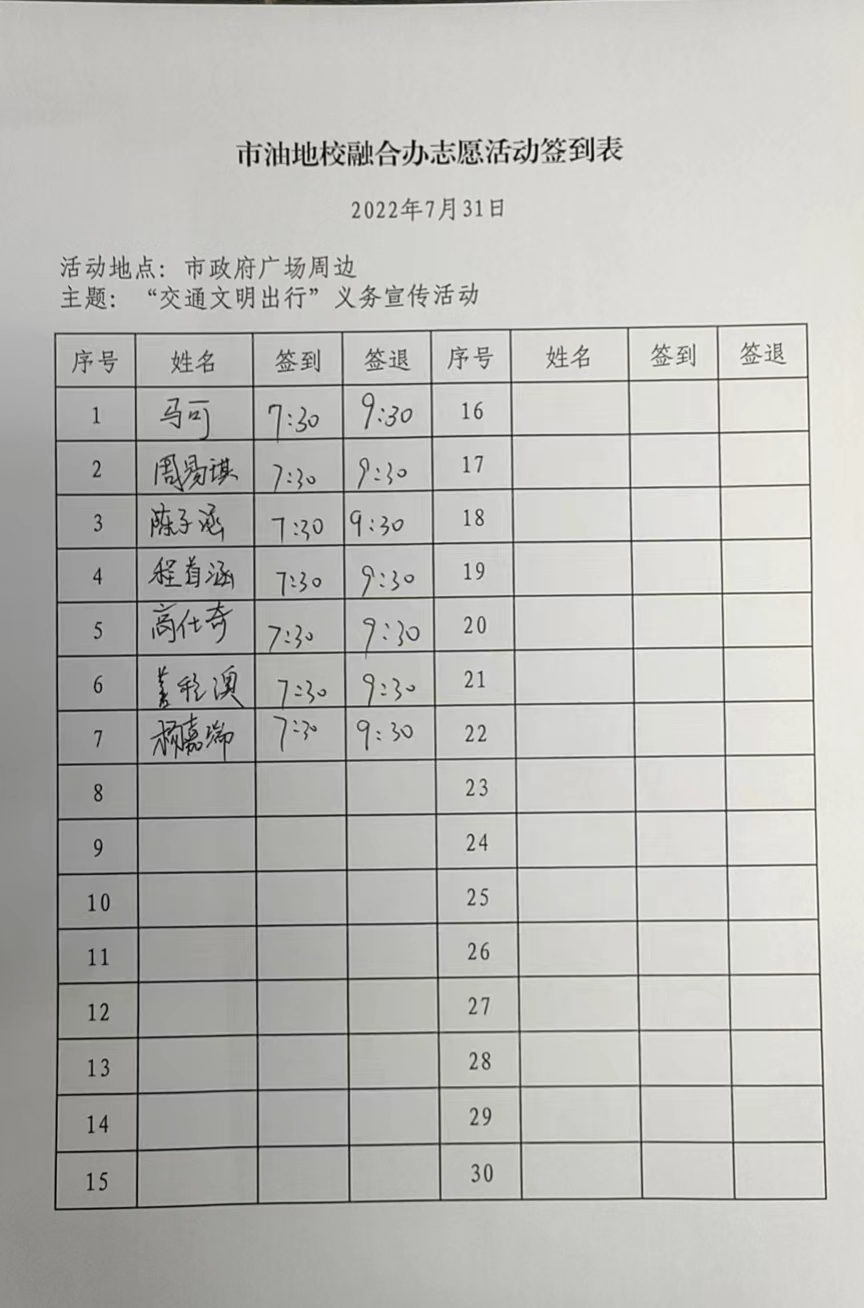 市油地校融合办志愿活动签到表
2022年7月31日
活动地点：市政府广场周边
主题：“交通文明出行”义务宣传活动
序号 姓名 签到 签退 序号 姓名 签到 签退
1 马可 7:30 9:30 16
2 周易琪 7:30 9:30 17
3 陈子涵 7:30 9:30 18
4 程首涵 7:30 9:30 19
5 高仕奇 7:30 9:30 20
6 7:30 9:30 21
7 杨嘉瑞 7:30 9:30 22
8 23
9 24
10 25
11 26
12 27
13 28
14 29
15 30